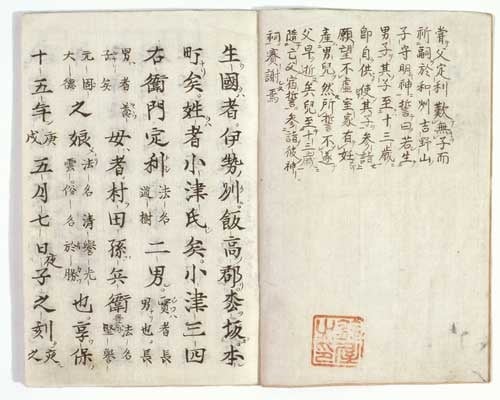 甞父定利歎無子而
祈嗣於和刕吉野山
子守明神誓曰若生
男子其子至十三歳
即自供使其子参詣
願望不虚室家有妊
産男兒然所誓不遂
父早逝矣兒至十三歳
隨亡父宿誓参詣彼神
祠賽謝焉
生國者伊勢刕飯高郡枩坂本
町矣姓者小津氏矣小津三四
右衛門定利法名道樹二男實者長男也長
男者養子矣母者村田孫兵衛法名堅譽
元固大徳之娘法名清譽光雲俗名於勝也享保
十五年庚戌五月七日夜子之刻